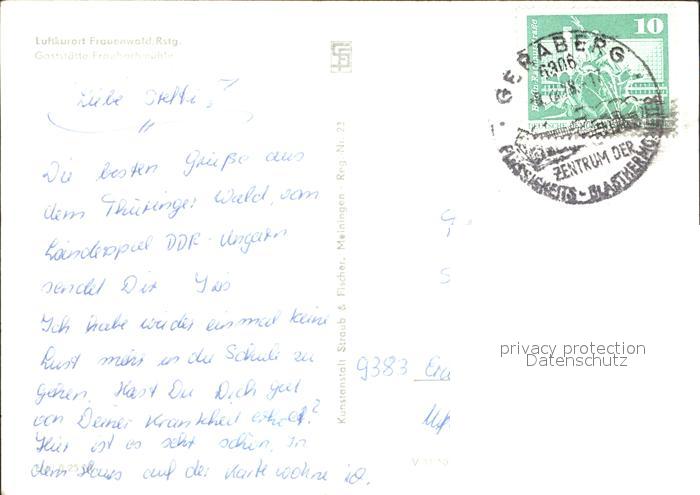 Luftkurort Frauenwald/Rstg.
Gaststätte Fraubachmühle
Liebe Steffi!
Die besten Grüße aus
dem Thüringer Wald, vom
Länderspiel DDR - Ungarn
sendet Dir
Ich habe wieder einmal keine
Lust mehr in die Schule zu
gehen. Hast Du Dich gut
von Deiner Krankheit erholt?
Hier ist es sehr schön. In
dem Haus auf der Karte wohne ich.
Kunstanstalt Straub & Fischer, Meiningen · Reg.-Nr. 23
10
GERABERG
6306
ZENTRUM DER
FLÜSSIGKEITS-GLASTHERMOMETER
9383
privacy protection
Datenschutz